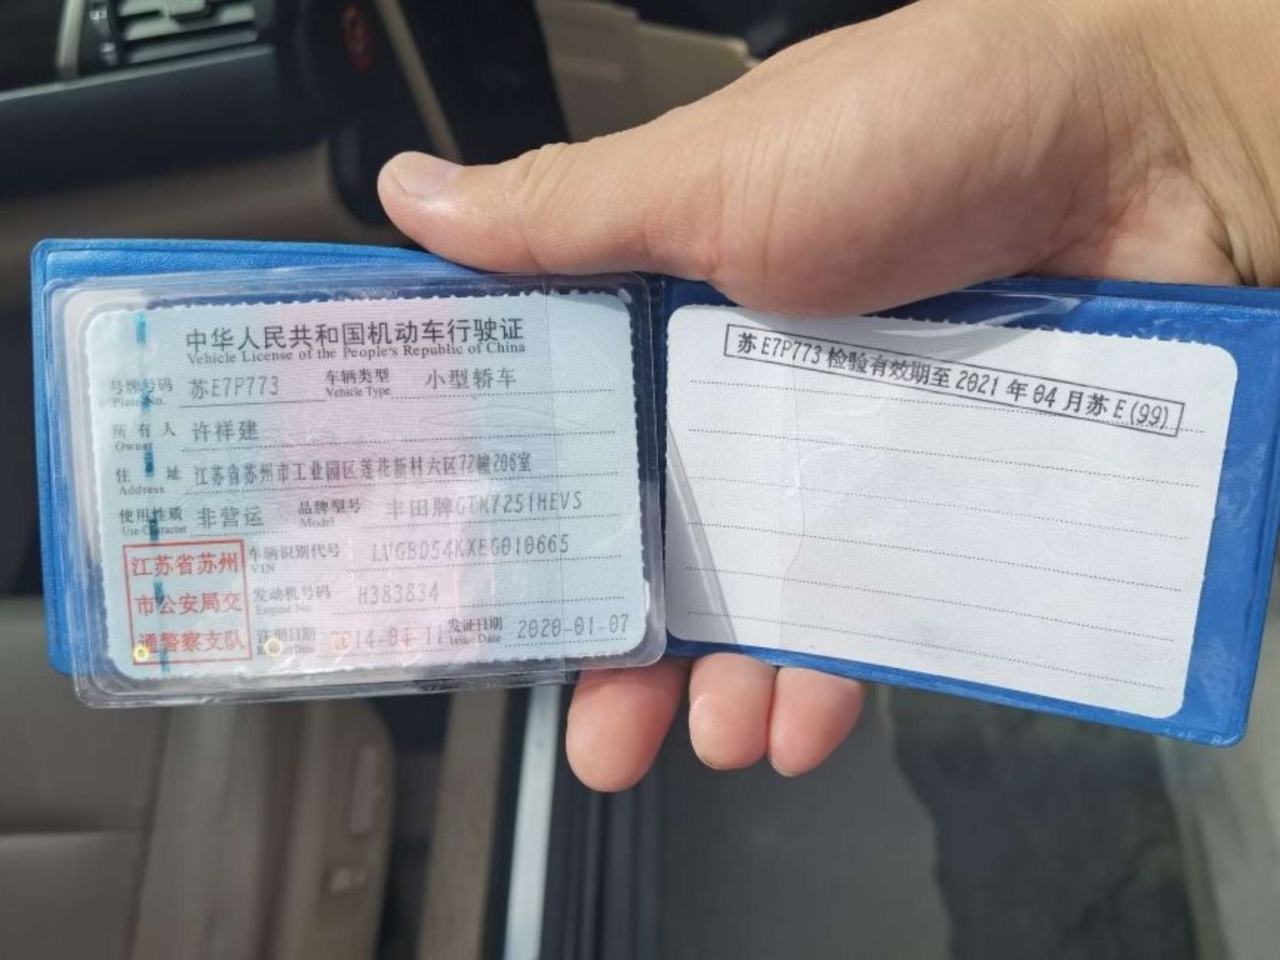 中华人民共和国机动车行驶证
Vehicle License of the People's Republic of China
号牌号码 苏E7P773 车辆类型 小型轿车
Plate No. Vehicle Type
所有人 许祥建
Owner
住址 江苏省苏州市工业园区莲花新村六区72幢206室
Address
使用性质 非营运 品牌型号 丰田牌GTM7251HEVS
Use Character Model
车辆识别代号 LVGBD54KXEG010665
VIN
发动机号码 H383834
Engine No.
注册日期 2014-04-11 发证日期 2020-01-07
Register Date Issue Date
江苏省苏州
市公安局交
通警察支队
苏E7P773 检验有效期至 2021 年 04 月苏 E(99)